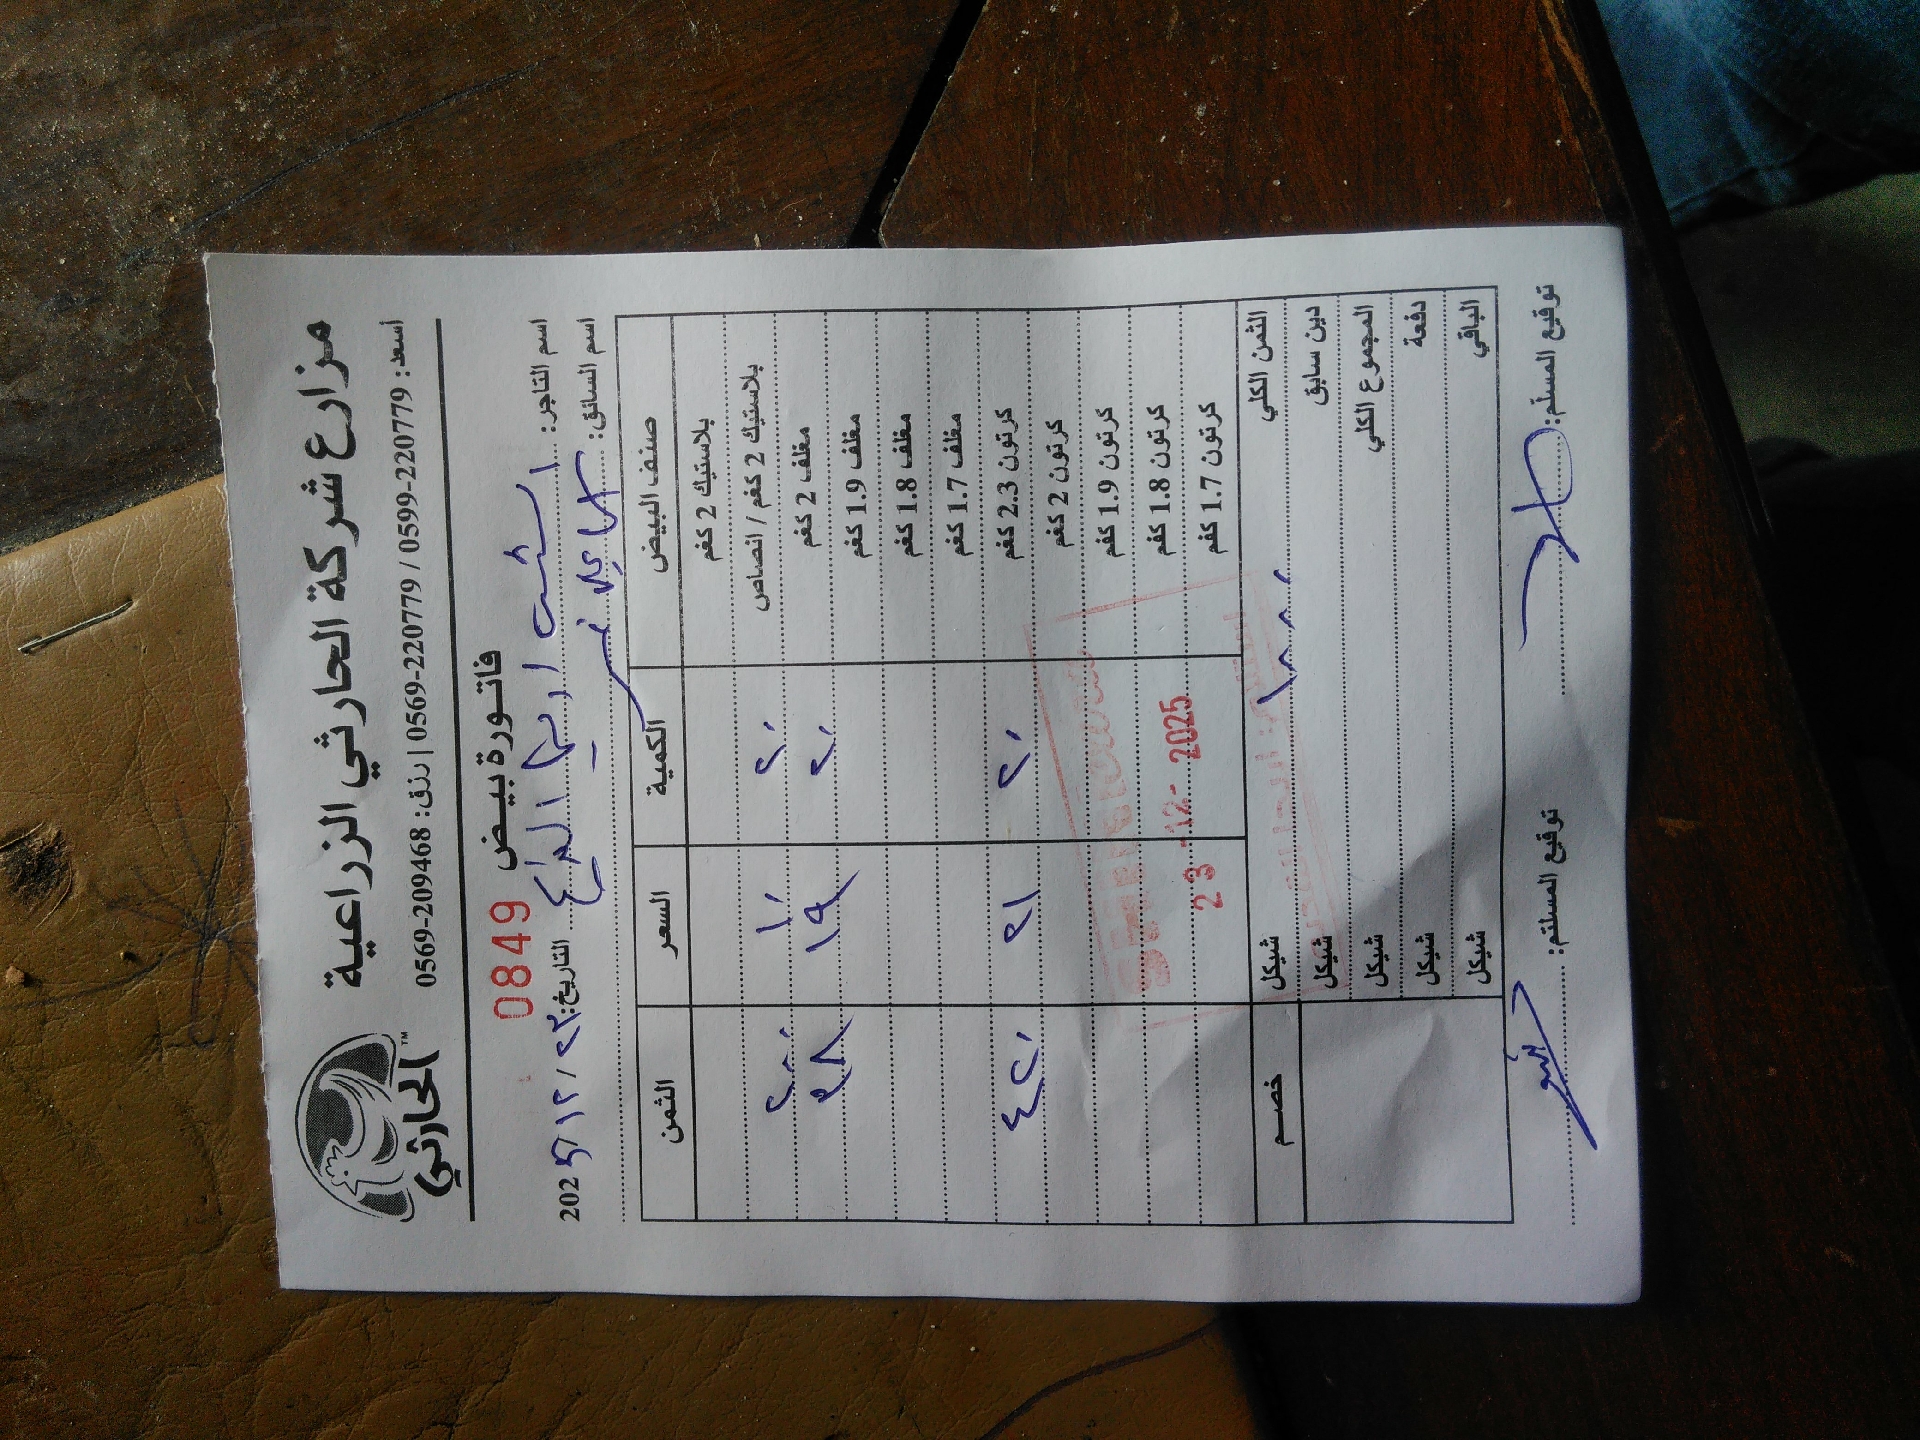 مزارع شركة الحارثي الزراعية
الحارثي™
اسعد: 0599-220779 / 0569-220779 | رزق: 0569-209468
فاتورة بيض
0849
اسم التاجر:
التاريخ: ٢٣ / ١٢ / 202٥
اسم السائق:
صنف البيض الكمية السعر الثمن
بلاستيك 2 كغم
بلاستيك 2 كغم / انصاص ٢٠ ١٠ ٢٠٠
مغلف 2 كغم ٢٠ ١٩ ٣٨٠
مغلف 1.9 كغم
مغلف 1.8 كغم
مغلف 1.7 كغم
كرتون 2.3 كغم ٢٠ ٢١ ٤٢٠
كرتون 2 كغم
كرتون 1.9 كغم
كرتون 1.8 كغم
كرتون 1.7 كغم
23 -12- 2025
الثمن الكلي ١٠٠٠ شيكل خصم
دين سابق شيكل
المجموع الكلي شيكل
دفعة شيكل
الباقي شيكل
توقيع المسلم: توقيع المستلم: